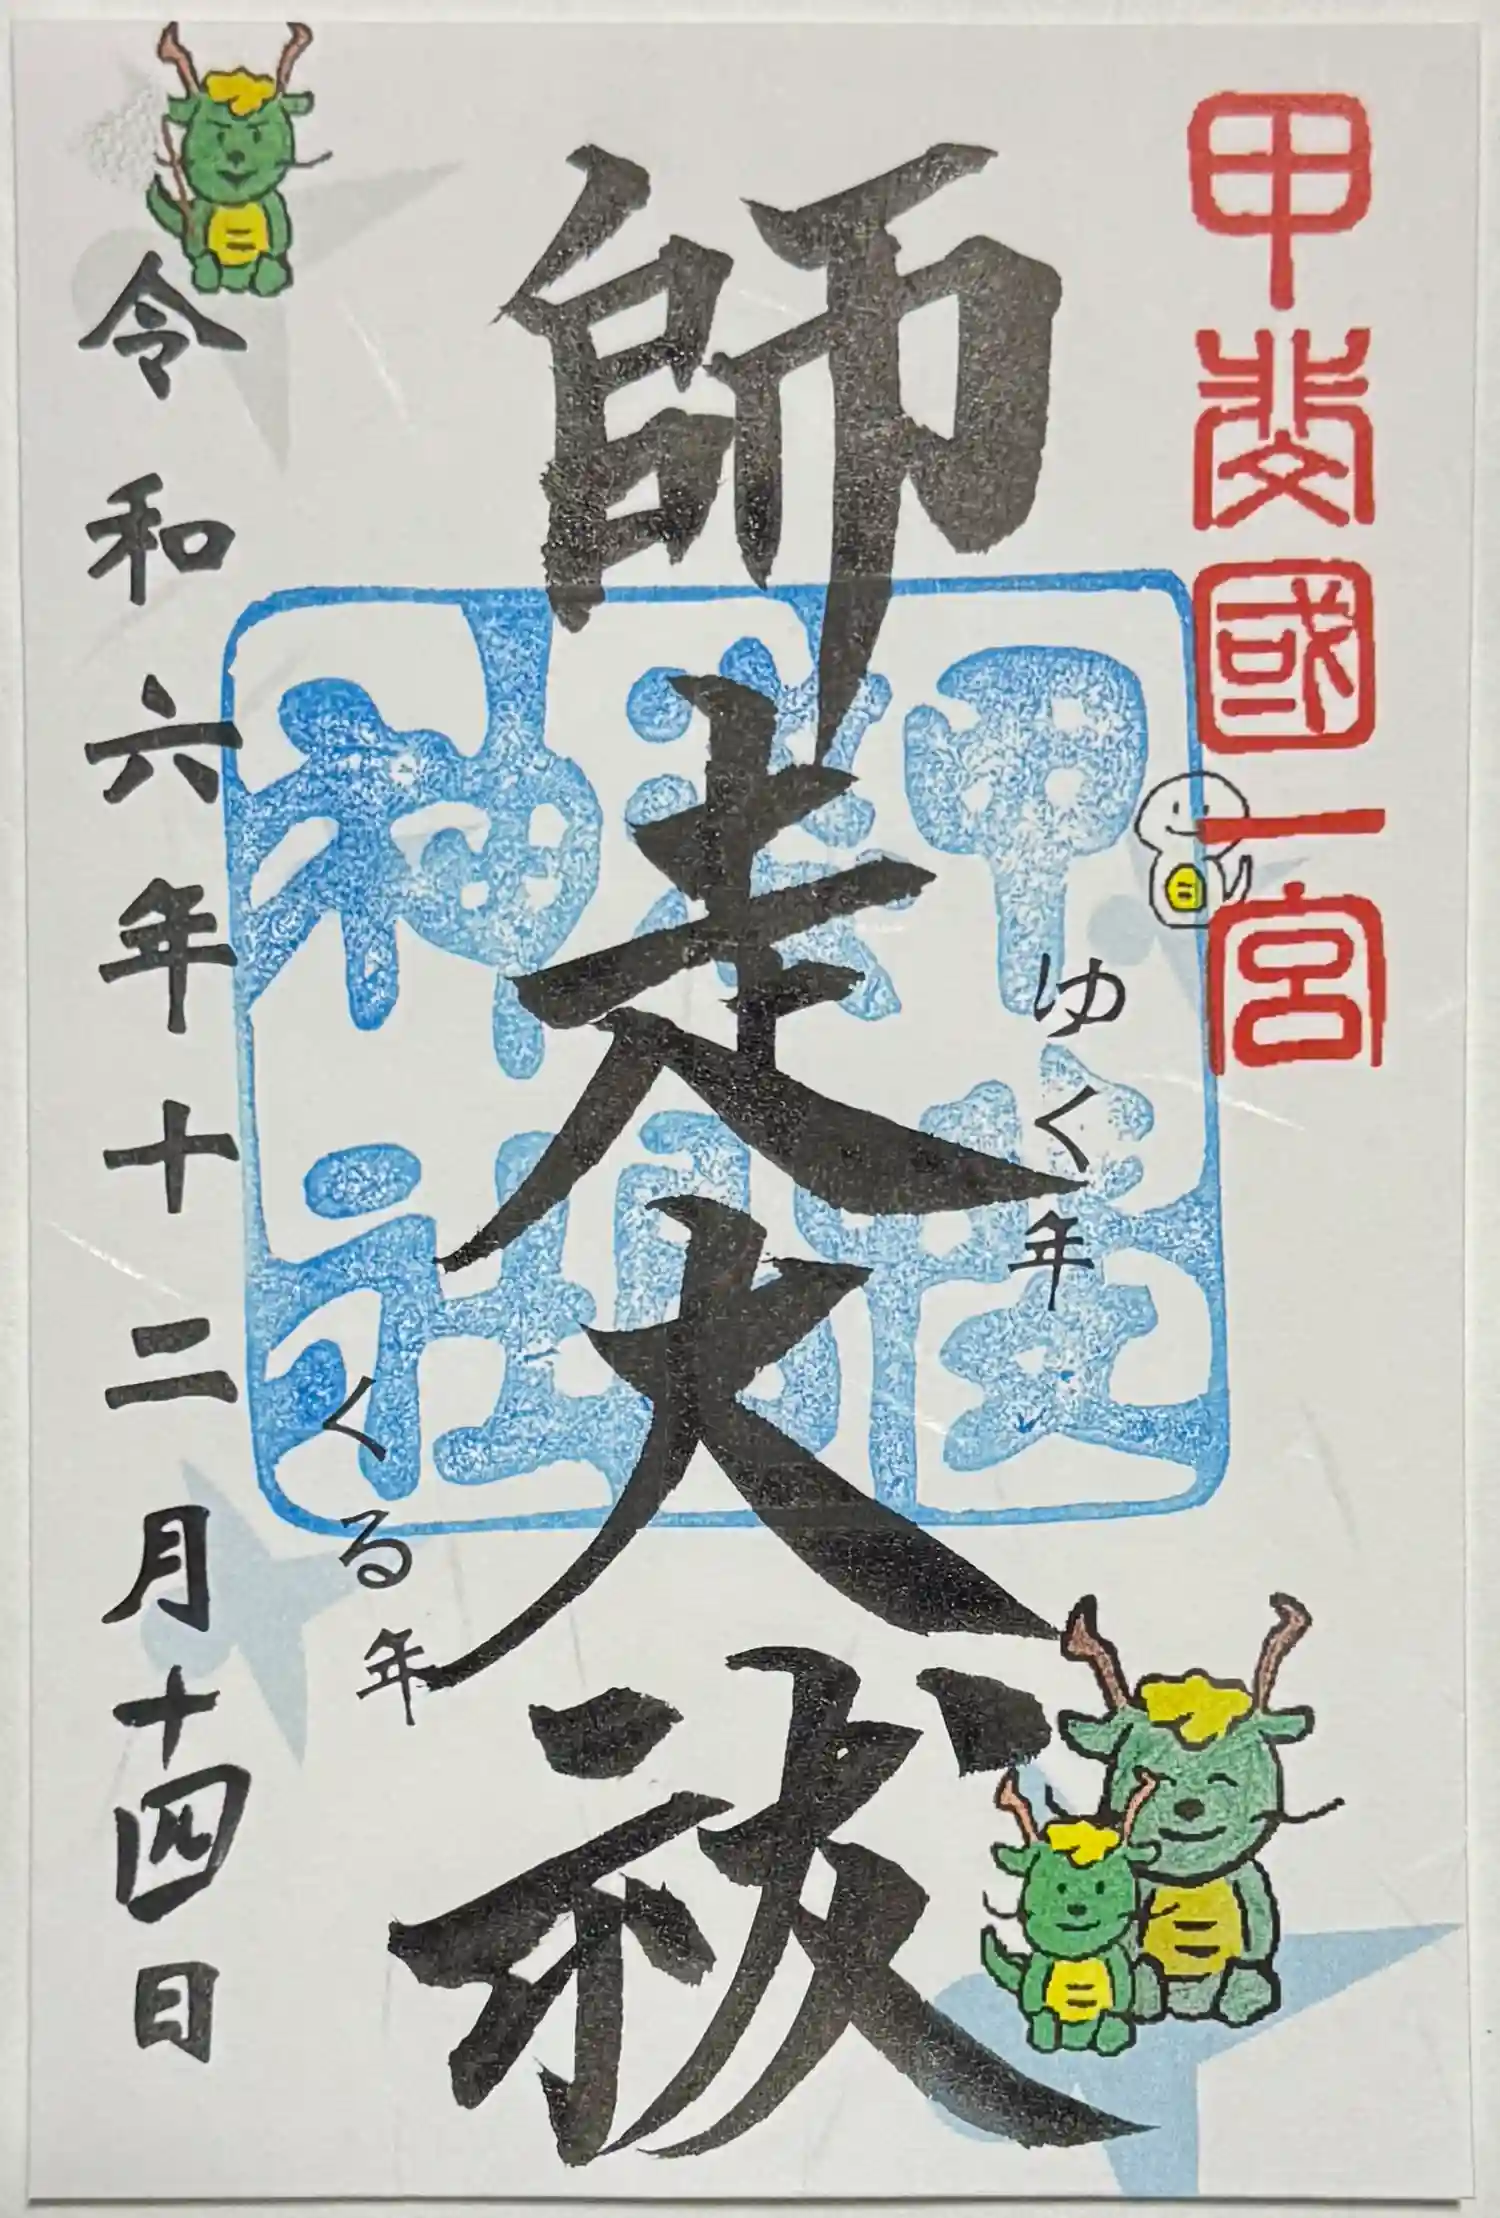 甲斐國一宮
師走大祓
ゆく年
くる年
甲斐
奈
神社
令和六年十二月十四日